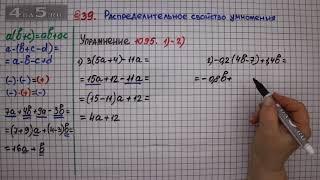 4A5.ru
§39. Распределительное свойство умножения
Упражнение 1095. 1)-2)
a(b+c)=ab+ac
a-(b+c-d)=
=a-b-c+d
(-)·(-)=(+)
(-)·(+)=(-)
7a+4b+9a-3b=
=(7+9)a+(4-3)b=
=16a+b
1) 3(5a+4)-11a=
=15a+12-11a=
=(15-11)a+12=
=4a+12
2) -0,2(4b-7)+1,4b=
=-0,8b+